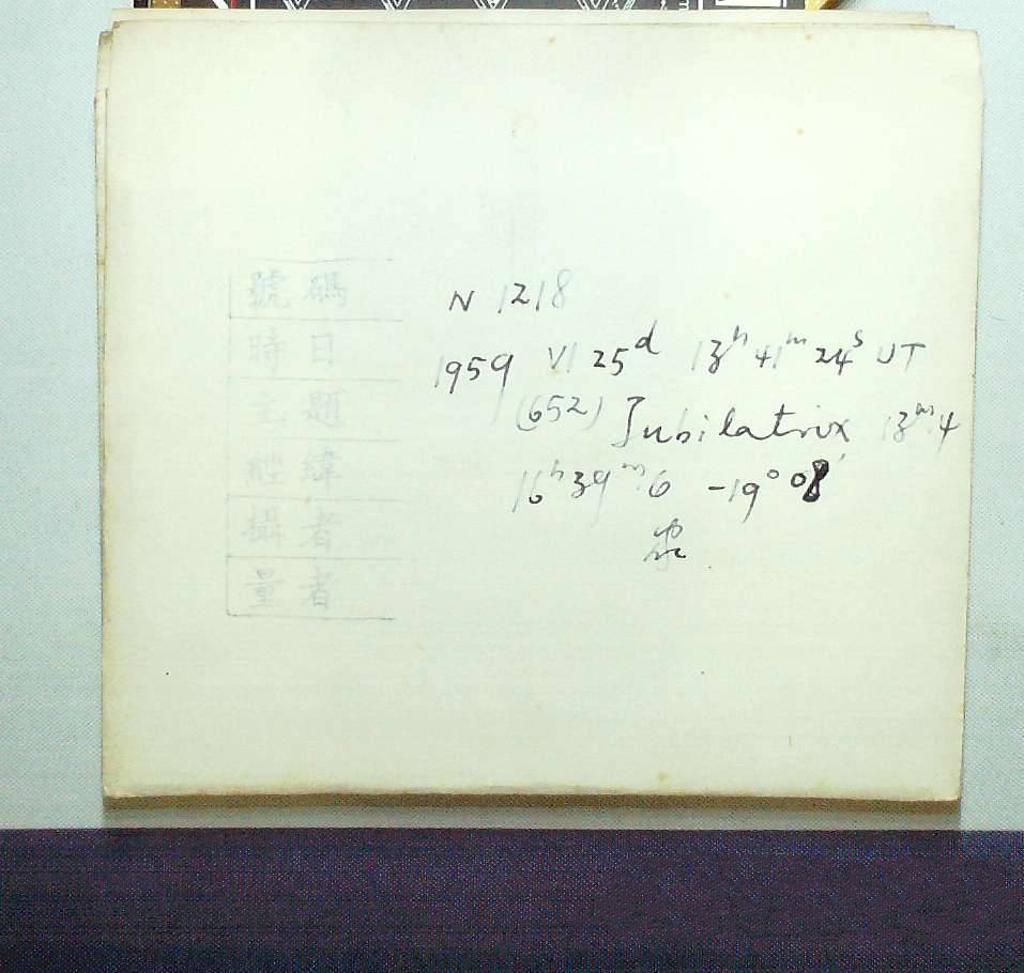 號碼
時日
主題
經緯
攝者
量者
N 1218
1959 VI 25ᵈ 13ʰ 41ᵐ 24ˢ UT
(652) Jubilatrix 13ᵐ.4
16ʰ 39ᵐ.6 -19° 08'